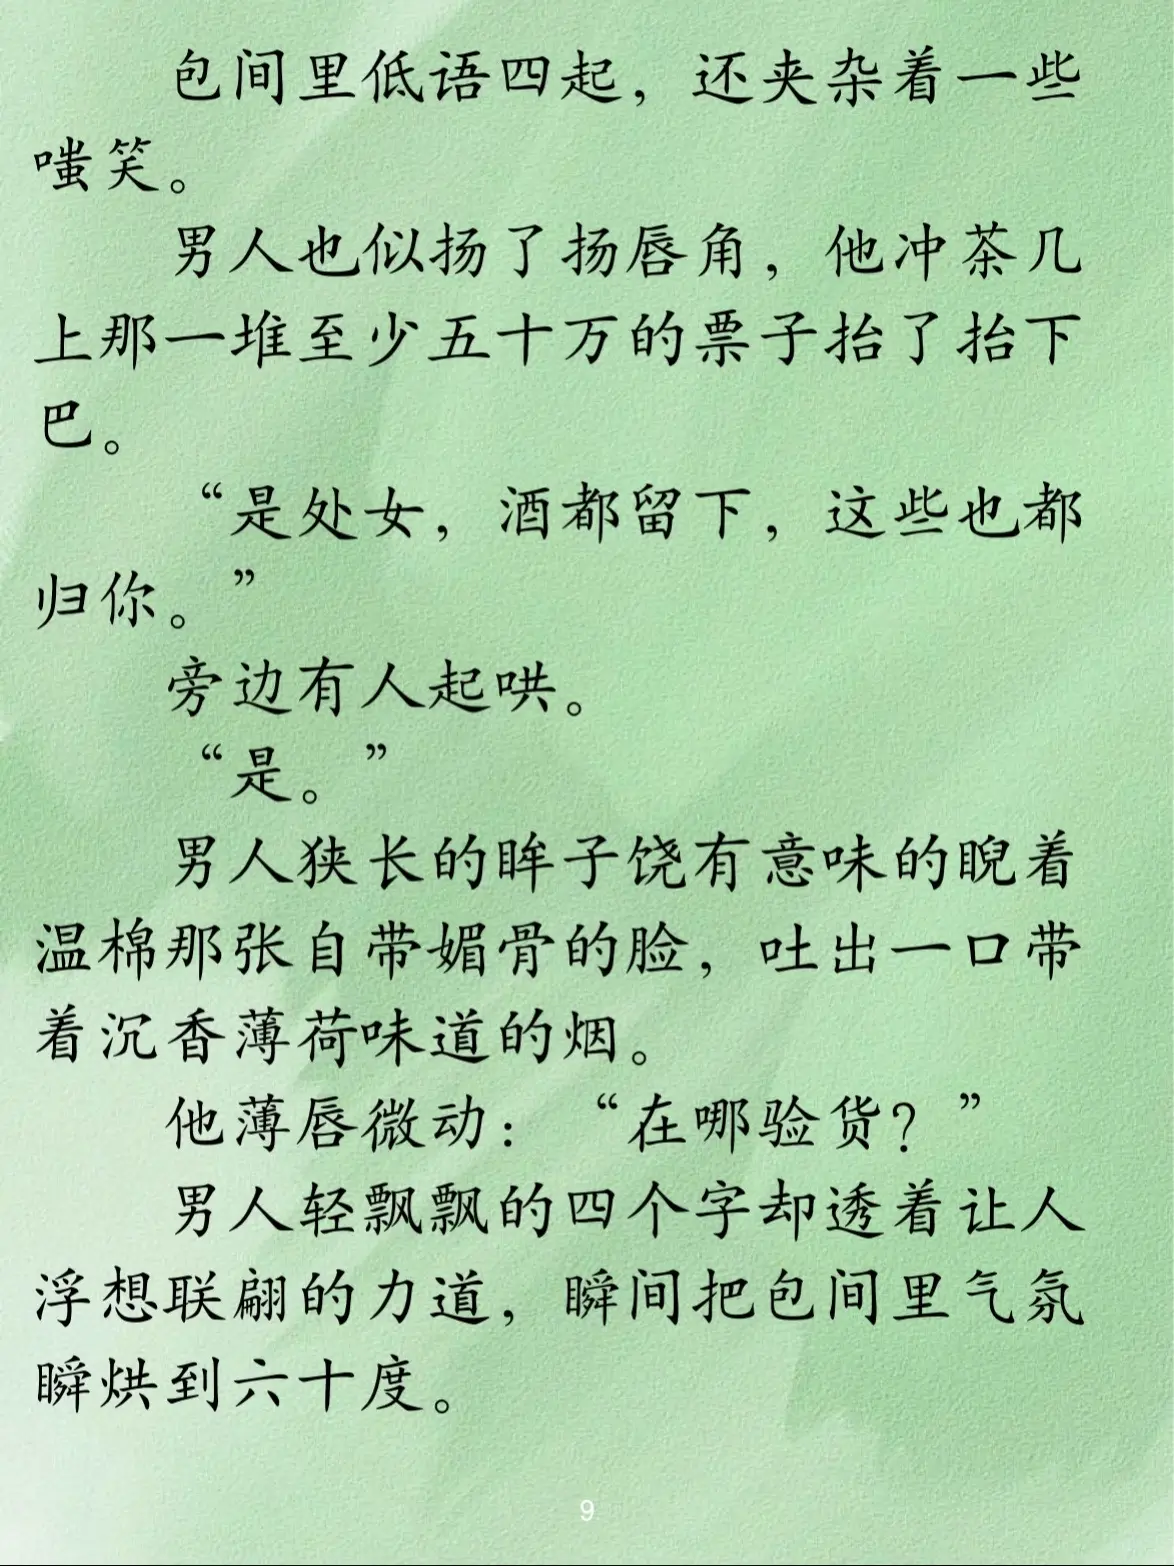 包间里低语四起，还夹杂着一些
嗤笑。
男人也似扬了扬唇角，他冲茶几
上那一堆至少五十万的票子抬了抬下
巴。
“是处女，酒都留下，这些也都
归你。”
旁边有人起哄。
“是。”
男人狭长的眸子饶有意味的睨着
温棉那张自带媚骨的脸，吐出一口带
着沉香薄荷味道的烟。
他薄唇微动：“在哪验货？”
男人轻飘飘的四个字却透着让人
浮想联翩的力道，瞬间把包间里气氛
瞬烘到六十度。
9